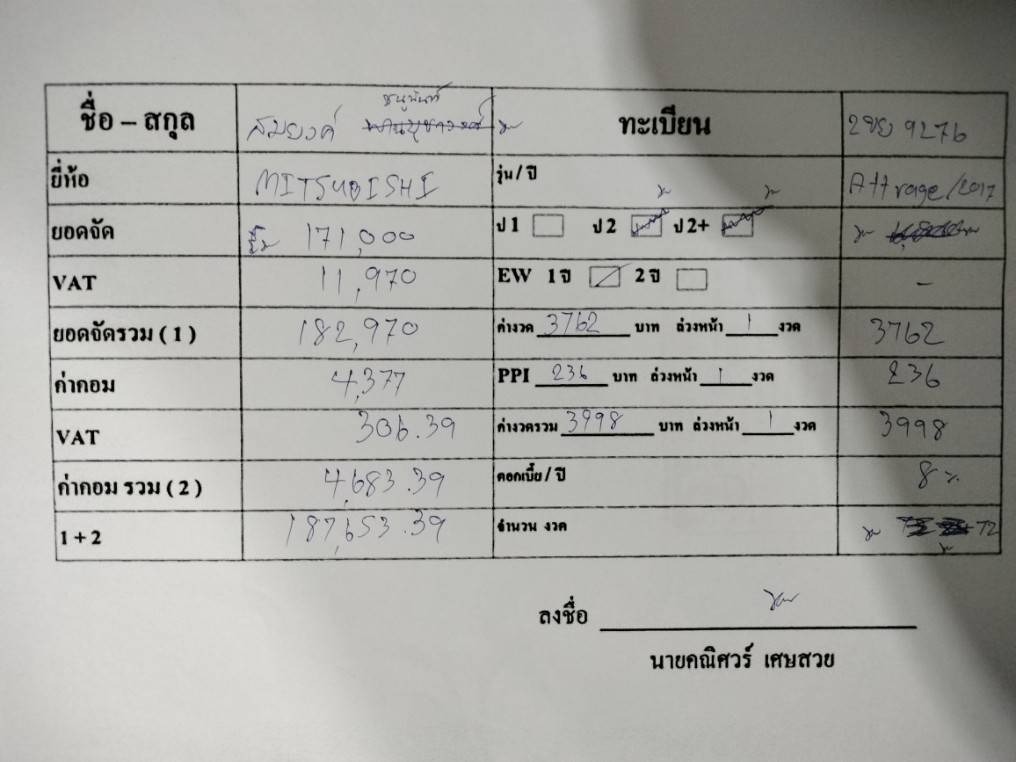 ชื่อ – สกุล สมยงค์ ทะเบียน 2ขย 9276
ยี่ห้อ MITSUBISHI รุ่น / ปี Attrage/2017
ยอดจัด 171,000 ป 1 ป 2 ป 2+
VAT 11,970 EW 1 ปี 2 ปี -
ยอดจัดรวม ( 1 ) 182,970 ค่างวด 3762 บาท ล่วงหน้า 1 งวด 3762
ค่าคอม 4,377 PPI 236 บาท ล่วงหน้า 1 งวด 236
VAT 306.39 ค่างวดรวม 3998 บาท ล่วงหน้า 1 งวด 3998
ค่าคอม รวม ( 2 ) 4,683.39 ดอกเบี้ย / ปี 8 %
1 + 2 187,653.39 จำนวน งวด 72
ลงชื่อ
นายคณิศวร์ เศษสวย